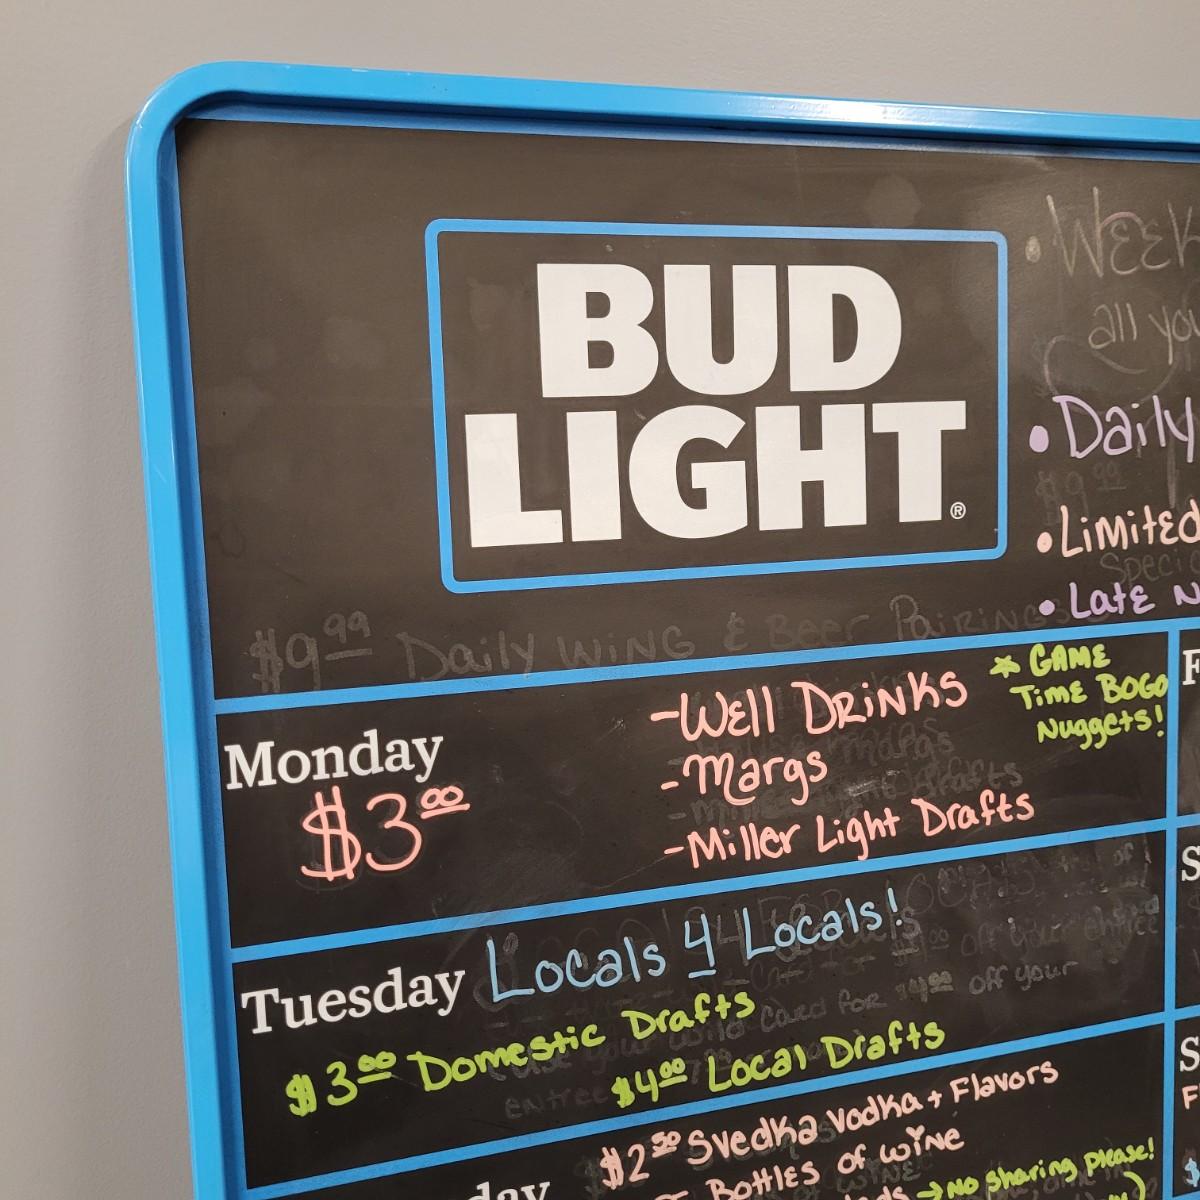 BUD
LIGHT®
• Week
all you
• Daily
$9.99
• Limited
Special
• Late N
$9.99 Daily Wing & Beer Pairings
Monday
$3.00
-Well Drinks
-Margs
-Miller Light Drafts
* Game
Time BOGO
Nuggets!
Tuesday Locals 4 Locals!
$3.00 Domestic Drafts
$4.00 Local Drafts
off your entree
card for $4.00 off your
entree
$2.50 Svedka Vodka + Flavors
Bottles of wine
→ No sharing please!
day
F
S
S
F
$